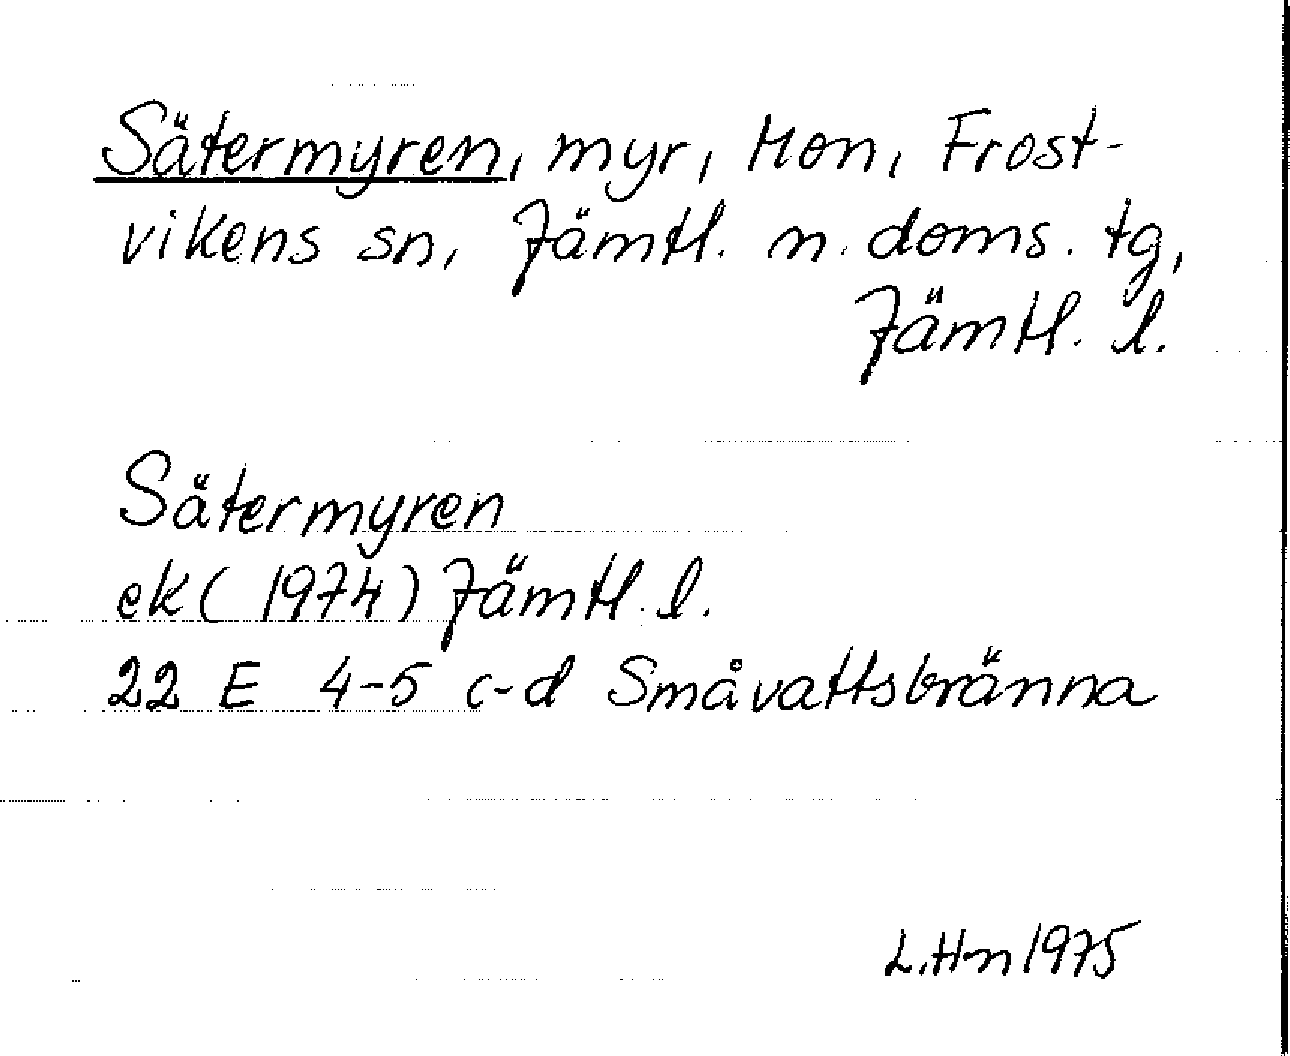 Sätermyren, myr, Hon, Frost-
vikens sn, Jämtl. n. doms. tg,
Jämtl. l.
Sätermyren
ek (1974) Jämtl. l.
22 E 4-5 c-d Småvattsbränna
L.Hn 1975